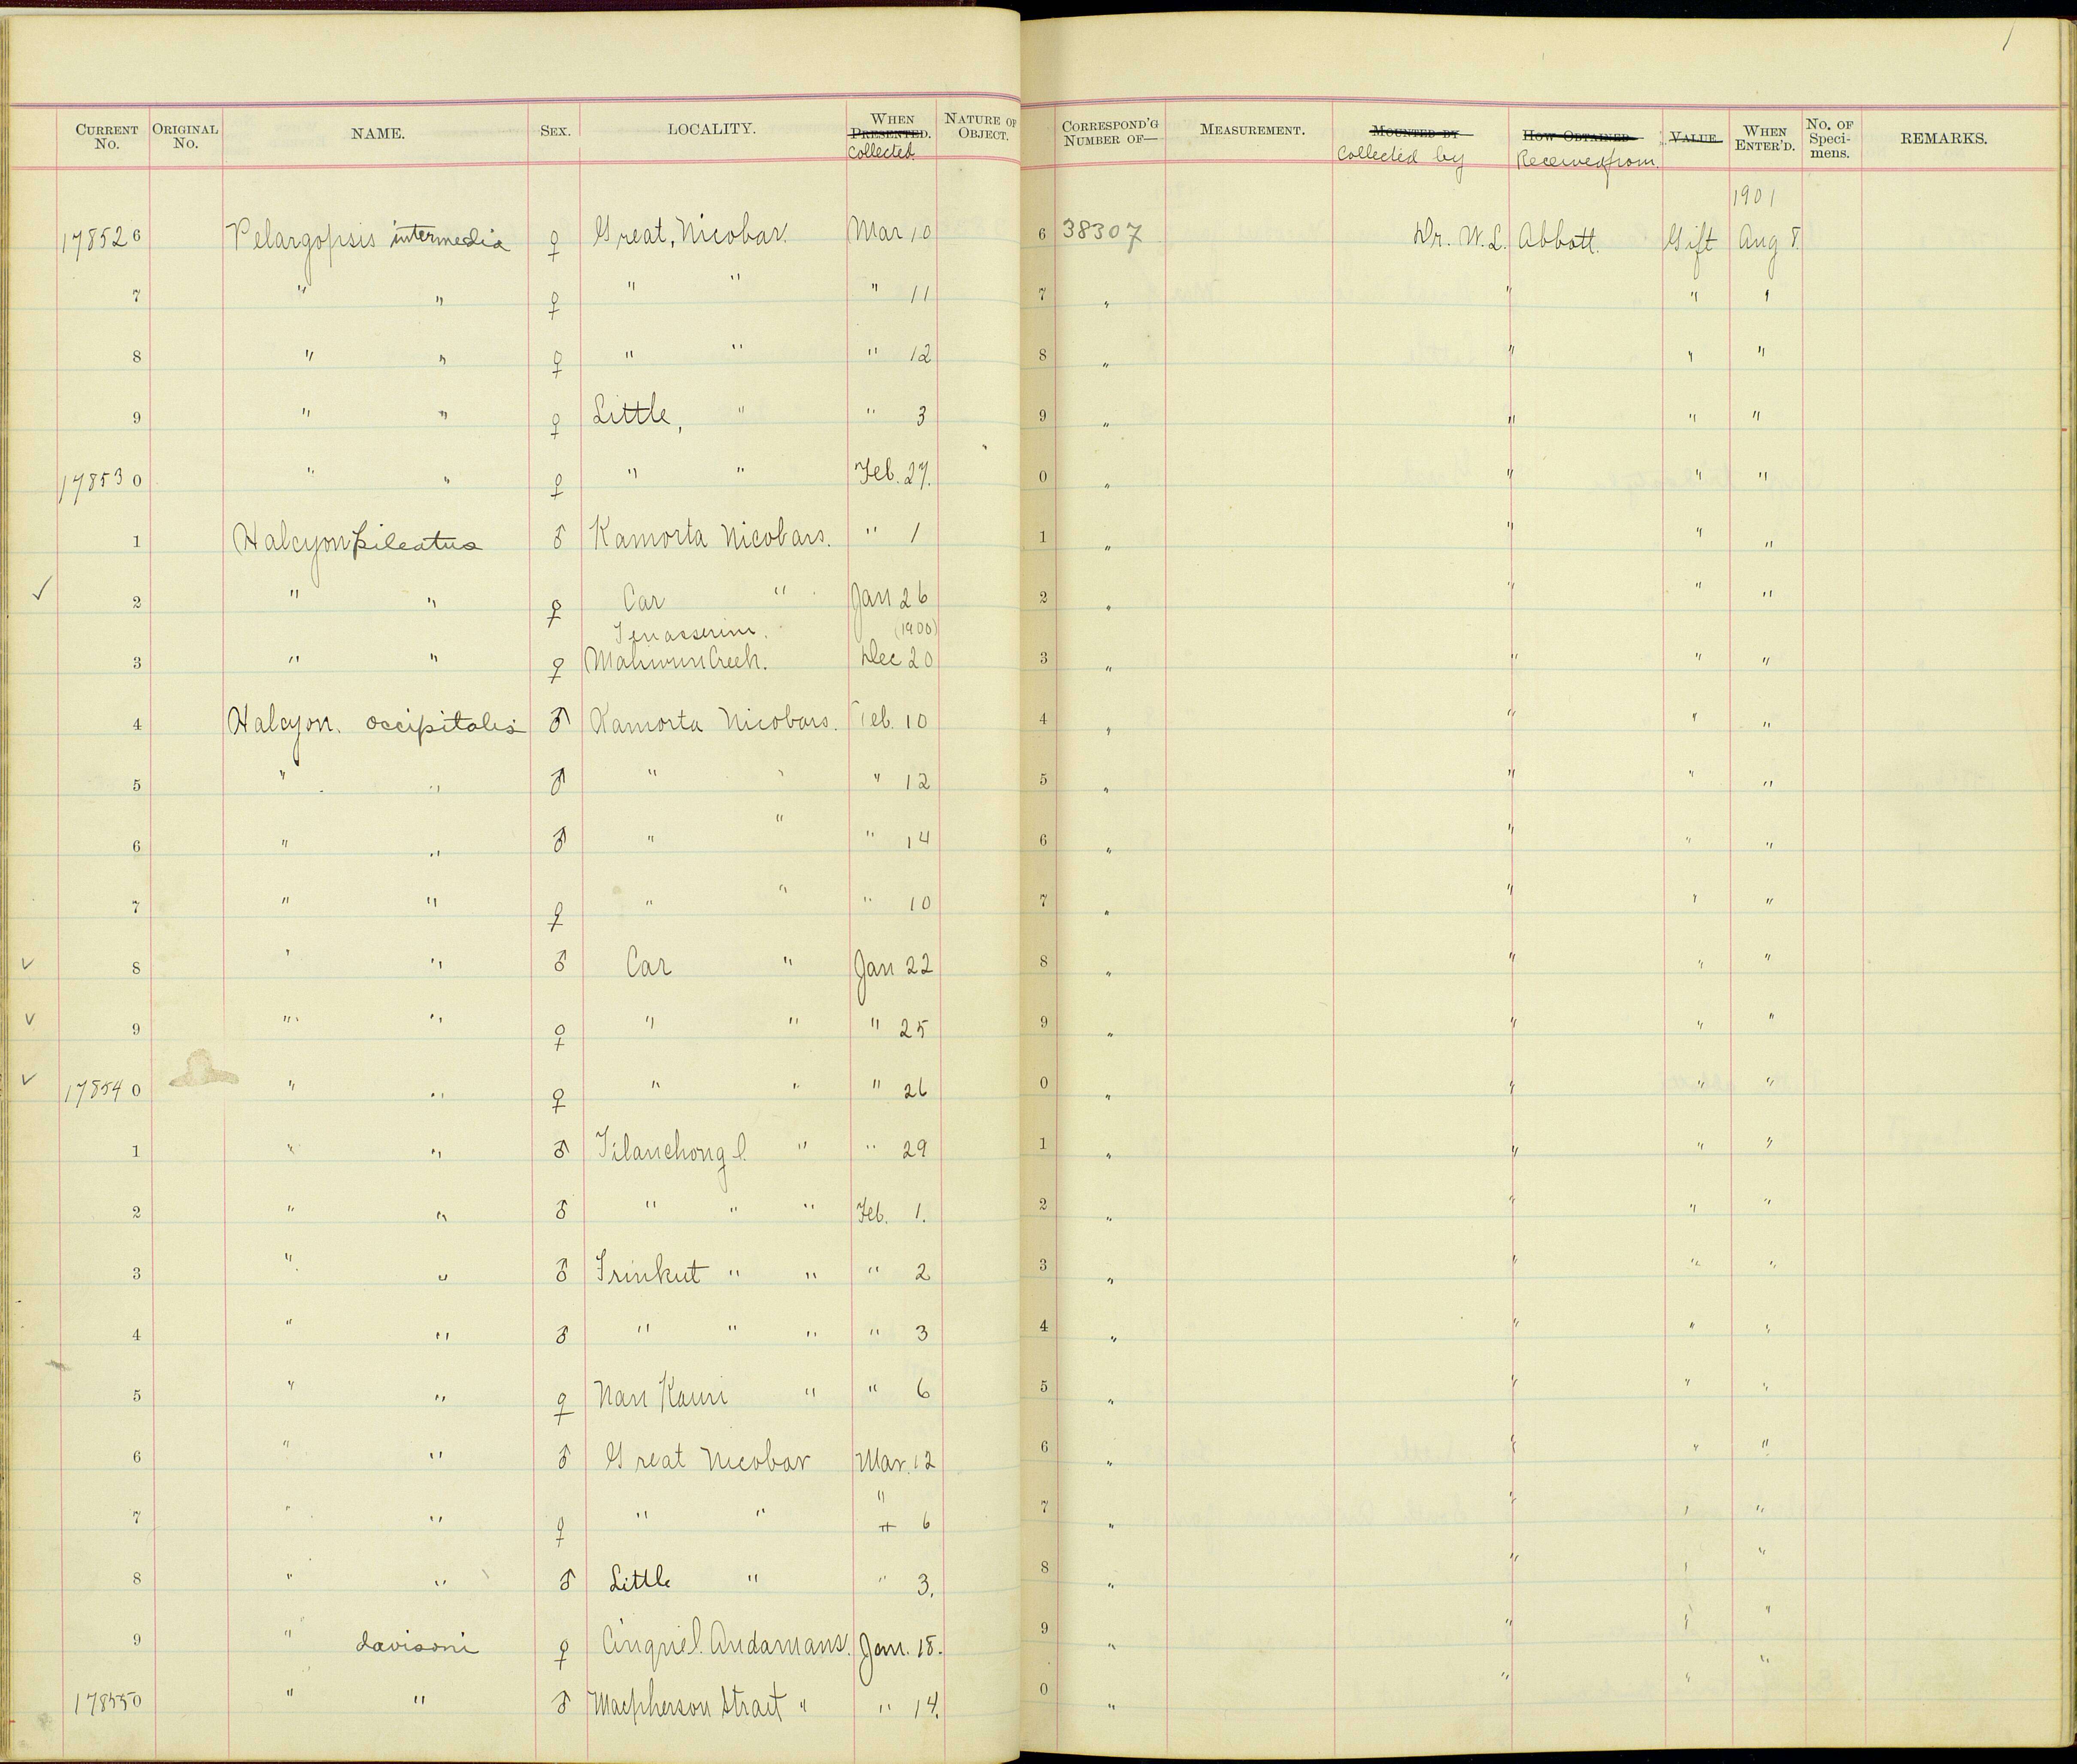 1
CURRENT No. ORIGINAL No. NAME. SEX. LOCALITY. WHEN PRESENTED. collected NATURE OF OBJECT. CORRESPOND'G NUMBER OF— MEASUREMENT. MOUNTED BY Collected by HOW OBTAINED Received from VALUE WHEN ENTER'D. No. OF Specimens. REMARKS.
1901
178526 Pelargopsis intermedia ♀ Great, Nicobar. Mar 10 6 38307 Dr. W. L. Abbott. Gift Aug 8.
7 " " ♀ " " " 11 7 " " " "
8 " " ♀ " " " 12 8 " " " "
9 " " ♀ Little, " " 3 9 " " " "
178530 " " ♀ " " Feb. 27. 0 " " " "
1 Halcyon pileatus ♂ Kamorta Nicobars. " 1 1 " " " "
✓ 2 " " ♀ Car " Jan 26 2 " " " "
Tenasserim. (1900)
3 " " ♀ Maliwun Creek. Dec 20 3 " " " "
4 Halcyon. occipitalis ♂ Kamorta Nicobars. Feb. 10 4 " " " "
5 " " ♂ " " " 12 5 " " " "
6 " " ♂ " " " 14 6 " " " "
7 " " ♀ " " " 10 7 " " " "
✓ 8 " " ♂ Car " Jan 22 8 " " " "
✓ 9 " " ♀ " " " 25 9 " " " "
✓ 178540 " " ♀ " " " 26 0 " " " "
1 " " ♂ Tilanchong I. " " 29 1 " " " "
2 " " ♂ " " " Feb. 1. 2 " " " "
3 " " ♂ Trinkut " " " 2 3 " " " "
4 " " ♂ " " " " 3 4 " " " "
5 " " ♀ Nan Kauri " " 6 5 " " " "
6 " " ♂ Great Nicobar Mar. 12 6 " " " "
7 " " ♀ " " " 6 7 " " " "
8 " " ♂ Little " " 3. 8 " " " "
9 " davisoni ♀ Cinque I. Andamans. Jan. 18. 9 " " " "
178550 " " ♂ Macpherson Strait " " 14. 0 " " "